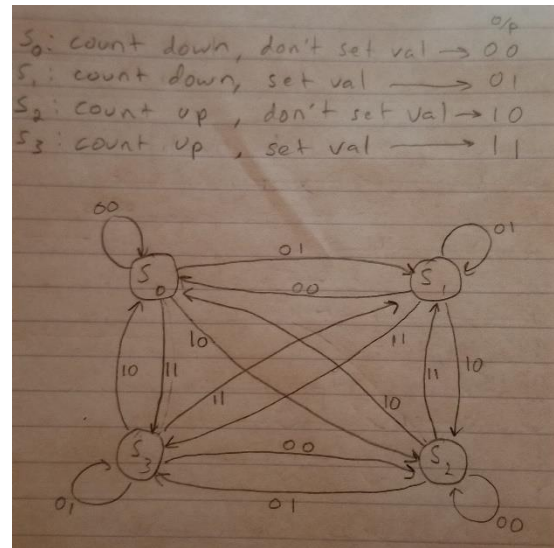 o/p
S0: count down, don't set val → 00
S1: count down, set val → 01
S2: count up, don't set val → 10
S3: count up, set val → 11
00
01
01
S0
S1
00
10
11
10
11
11
11
10
10
S3
00
S2
01
01
00